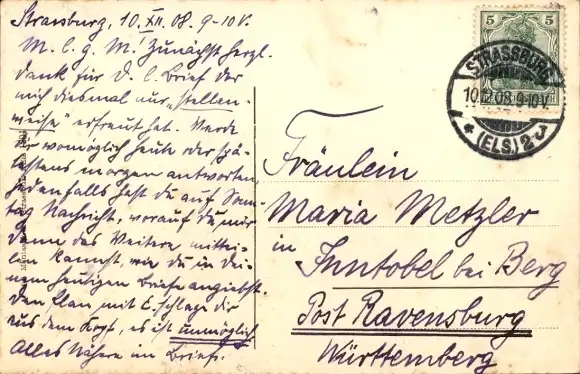 Strassburg, 10.XII.08. 9-10V.
M. l. g. M. Zunächst herzl.
Dank für D. l. Brief der
mich diesmal nur „stellen-
weise" erfreut hat. Werde
dir womöglich heute oder spä-
testens morgen antworten
jedenfalls hast du auf Sonn-
tag Nachricht, worauf du mir
dann das Weitere mittei-
len kannst, wie du in Dei-
nem heutigen Briefe angiebst.
Den Plan mit E. schlage dir
aus dem Kopf, es ist unmöglich
Alles Nähere im Briefe.
5 5
STRASSBURG
10.12.08.9-10V.
* (ELS.) 2
Fräulein
Maria Metzler
in Inntobel bei Berg
Post Ravensburg
Württemberg